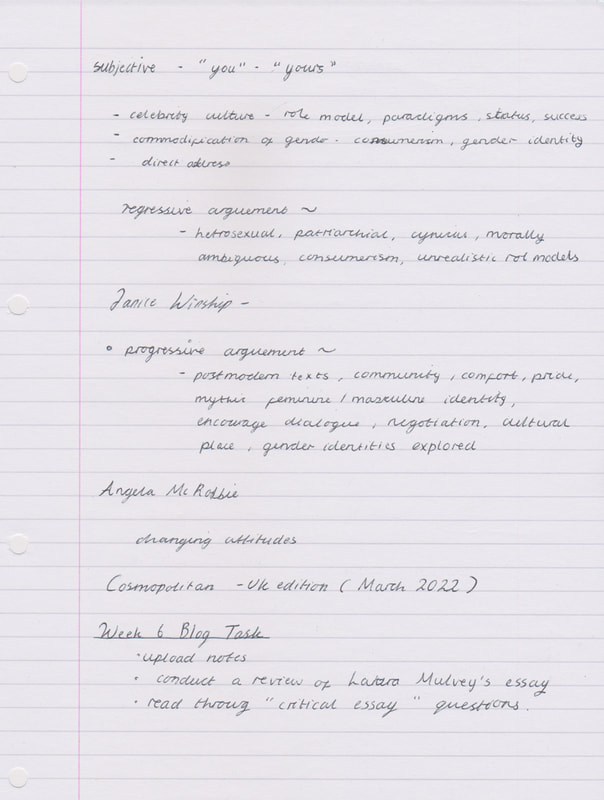 subjective - "you" - "yours"
- celebrity culture - role model, paradigms, status, success
- commodification of gende - consumerism, gender identity
- direct address
regressive arguement ~
- hetrosexual, patriarchial, cynical, morally
ambiguous, consumerism, unrealistic rol models
Janice Winship -
• progressive arguement ~
- postmodern texts, community, comfort, pride,
myths feminine / masculine identity,
encourage dialogue, negotiation, cultural
place, gender identities explored
Angela McRobbie
changing attitudes
Cosmopolitan - UK edition (March 2022)
Week 6 Blog Task
• upload notes
• conduct a review of Mulvey's essay
• read throug "critical essay" questions.